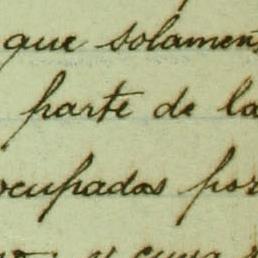 que solamen
parte de la
ocupadas por
y cuya